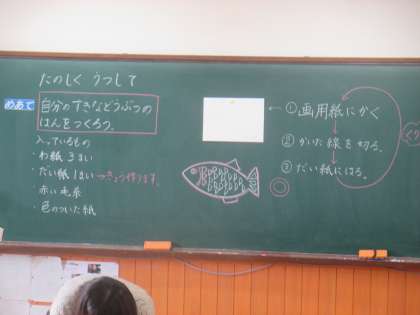 たのしく うつして
めあて
自分のすきなどうぶつの
はんをつくろう。
入っているもの
・わ紙 3まい
・だい紙 1まい つきょう作ります。
・赤い毛糸
・色のついた紙
← ①画用紙にかく
②かいた線を切る。
③だい紙にはる。